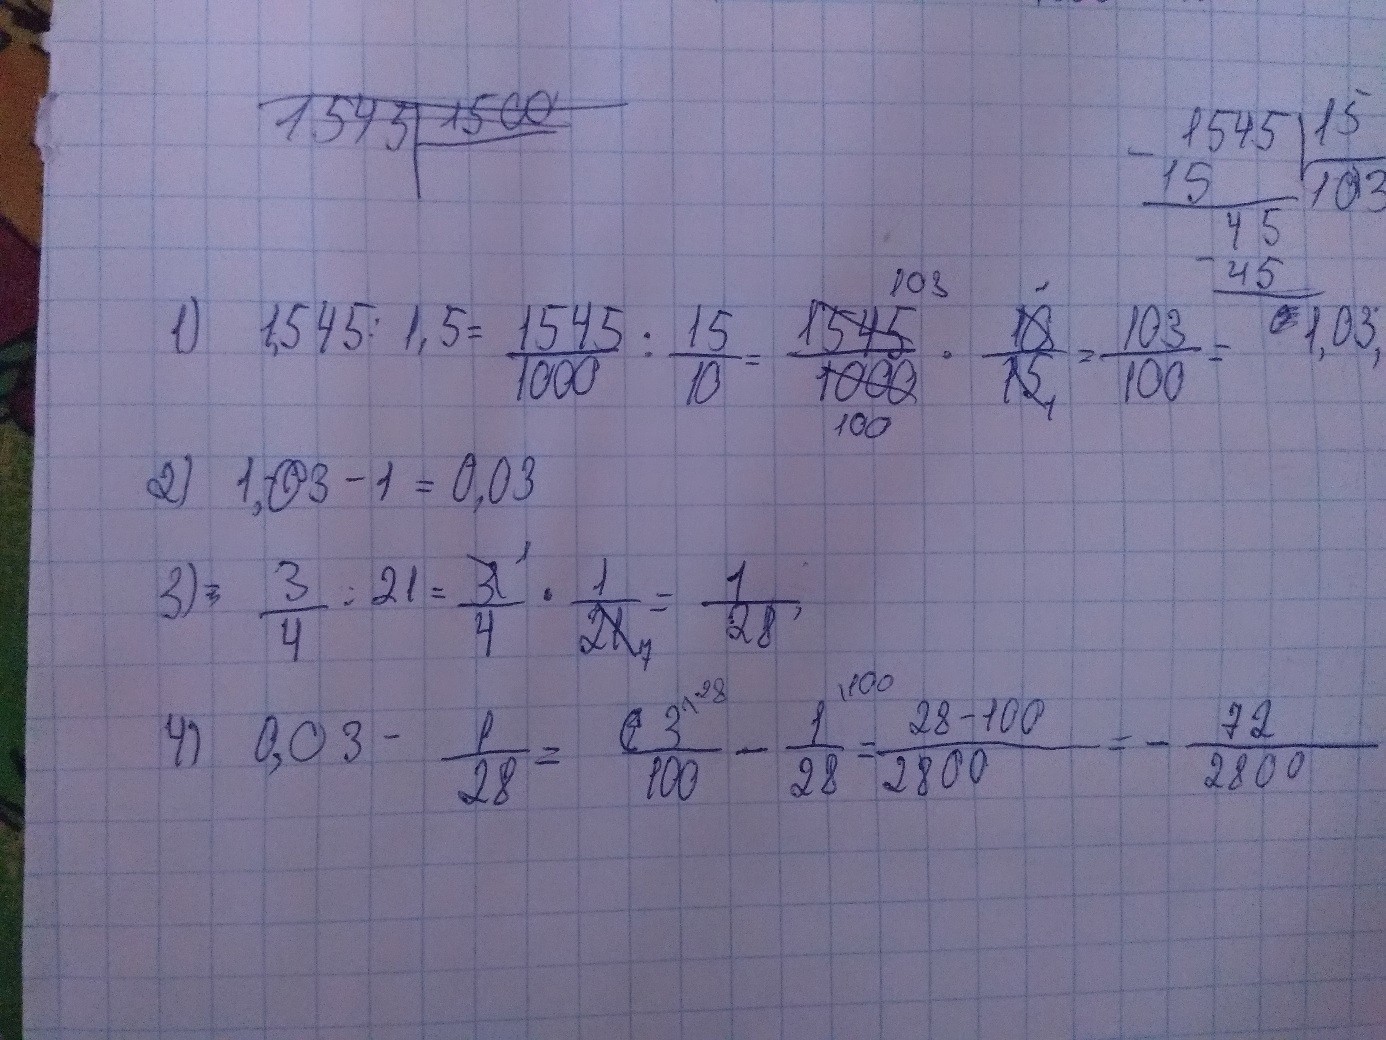 1545 | 1500
1545 | 15
15 | 103
45
- 45
0
1) 1,545 : 1,5 = 1545/1000 : 15/10 = 1545/1000 · 10/15 = 103/100 = 1,03,
103
100
1
2) 1,03 - 1 = 0,03
3) = 3/4 : 21 = 3/4 · 1/21 = 1/28;
1
7
4) 0,03 - 1/28 = 3\28/100 - 1\100/28 = 28-100/2800 = - 72/2800